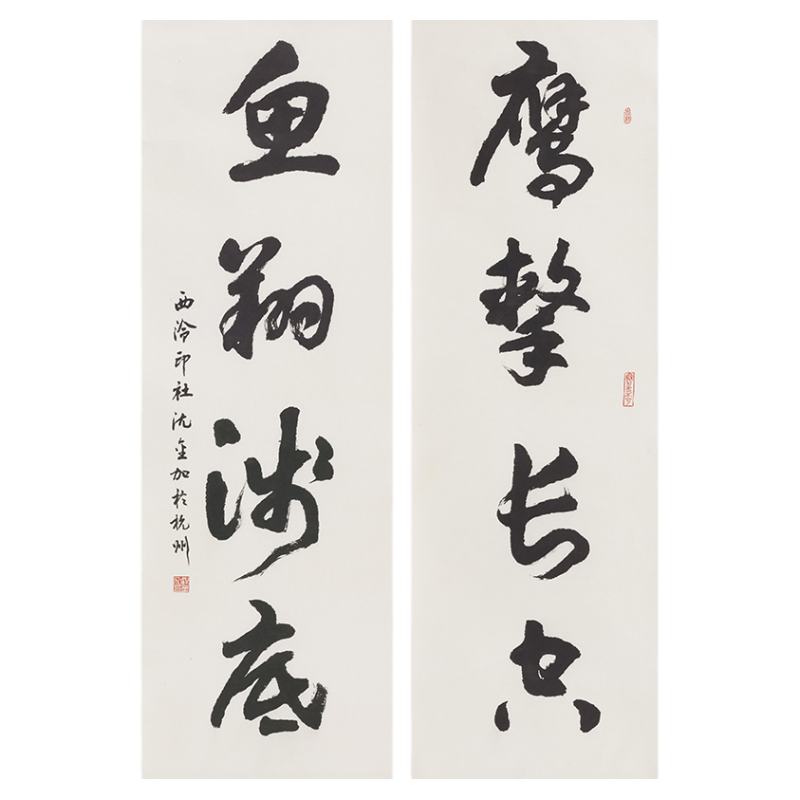 鹰击长空
鱼翔浅底
西泠印社沈金加於杭州